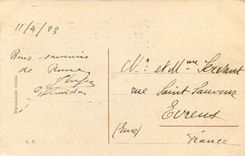 11/4/23
Bons souvenirs
de Rome
Mr et Mme Servant
rue Saint Sauveur
Evreux
(Eure)
France